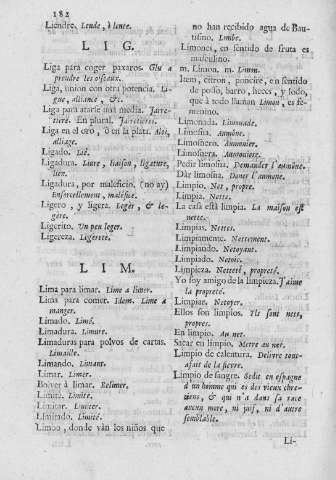 182
Liendre, Lende, à lente.
L I G.
Liga para coger paxaros. Glu à
prendre les oiseaux.
Liga, union con otra potencia. Li-
gue, alliance, &c.
Liga para atarse una media. Jarre-
tiere. En plural. Jarretieres.
Liga en el oro, ò en la plata. Aloi,
alliage.
Ligado. Lié.
Ligadura. Liure, liaison, ligature,
lien.
Ligadura, por maleficio. (no ay)
Ensorcellement, malefice.
Ligero, y ligera. Leger, & le-
gére.
Ligerito. Un peu leger.
Ligereza. Légéreté.
L I M.
Lima para limar. Lime a limer.
Lima para comer. Idem. Lime a
manger.
Limado. Limé.
Limadura. Limure.
Limaduras para polvos de cartas.
Limaille.
Limando. Limant.
Limar. Limer.
Bolver à limar. Relimer.
Limite. Limite.
Limitar. Limiter.
Limitado. Limité.
Limbo, donde vàn los niños que
no han recibido agua de Bau-
tismo. Limbe.
Limones, en sentido de fruta es
masculino.
m. Limon. m. Limon.
Item, citron, poncire, en sentido
de podo, barro, heces, y lodo,
que à todo llaman Limon, es fe-
menino.
Limonada. Limonade.
Limosna. Aumône.
Limosnero. Aumonier.
Limosnera. Aumoniere.
Pedir limosna. Demander l'aumône.
Dàr limosna. Doner l'aumone.
Limpio. Net, propre.
Limpia. Nette.
La casa està limpia. La maison est
nette.
Limpias. Nettes.
Limpiamente. Nettement.
Limpiando. Netoyant.
Limpiado. Netoié.
Limpieza. Netteté, propreté.
Yo soy amigo de la limpieza. J'aime
la propreté.
Limpiar. Netoyer.
Ellos son limpios. Ils sont nets,
propres.
En limpio. Au net.
Sacar en limpio. Metre au net.
Limpio de calentura. Delivré tout-
afait de la fievre.
Limpio de sangre. Sedit en espagne
d'un homme qui es des vieux chre-
tiens, & qui n'a dans sa race
aucun more, ni juif, ni d'autre
semblable.
Li-